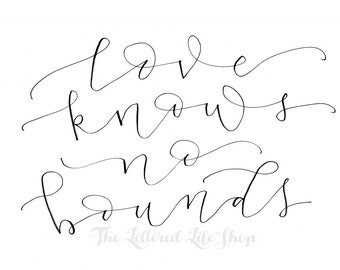 love
knows
no
bounds
The Lettered Life Shop